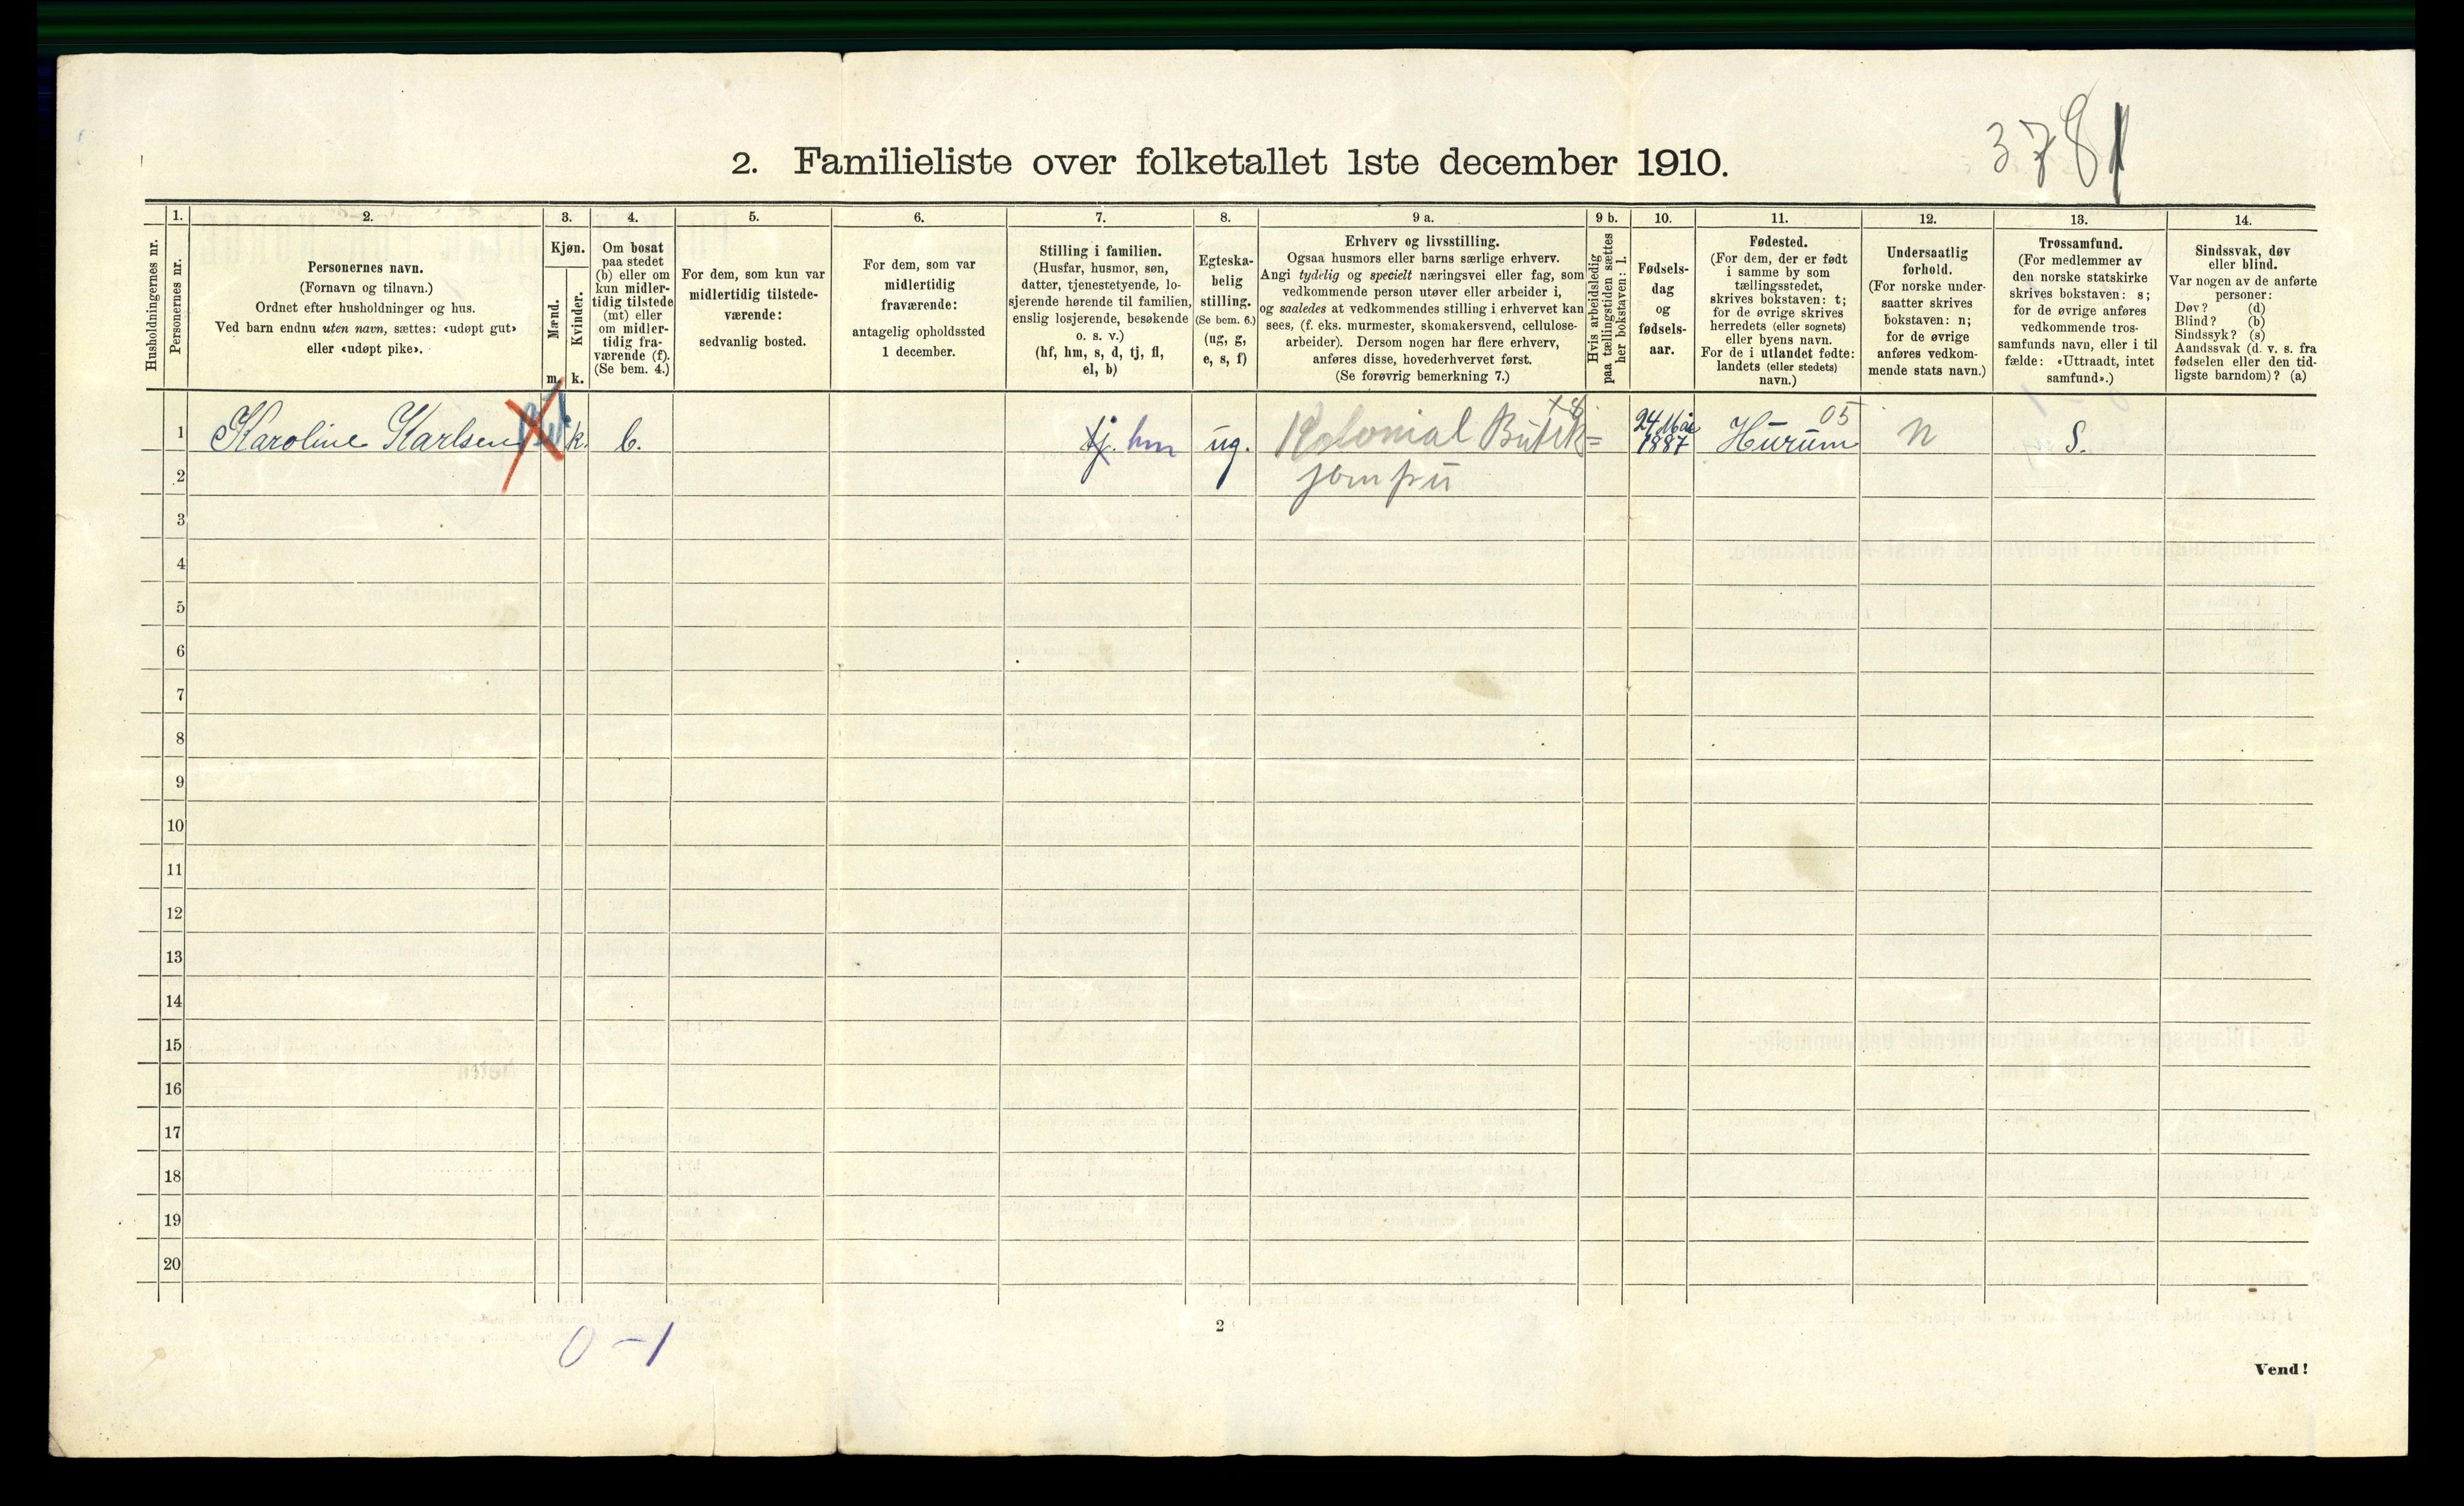 3781
2. Familieliste over folketallet 1ste december 1910.
Husholdningernes nr.
1.
Personernes nr.
2.
Personernes navn.
(Fornavn og tilnavn.)
Ordnet efter husholdninger og hus.
Ved barn endnu uten navn, sættes: «udøpt gut»
eller «udøpt pike».
3.
Kjøn.
Mænd.
Kvinder.
m. k.
4.
Om bosat
paa stedet
(b) eller om
kun midler-
tidig tilstede
(mt) eller
om midler-
tidig fra-
værende (f).
(Se bem. 4.)
5.
For dem, som kun var
midlertidig tilstede-
værende:
sedvanlig bosted.
6.
For dem, som var
midlertidig
fraværende:
antagelig opholdssted
1 december.
7.
Stilling i familien.
(Husfar, husmor, søn,
datter, tjenestetyende, lo-
sjerende hørende til familien,
enslig losjerende, besøkende
o. s. v.)
(hf, hm, s, d, tj, fl,
el, b)
8.
Egteska-
belig
stilling.
(Se bem. 6.)
(ug, g,
e, s, f)
9 a.
Erhverv og livsstilling.
Ogsaa husmors eller barns særlige erhverv.
Angi tydelig og specielt næringsvei eller fag, som
vedkommende person utøver eller arbeider i,
og saaledes at vedkommendes stilling i erhvervet kan
sees, (f. eks. murmester, skomakersvend, cellulose-
arbeider). Dersom nogen har flere erhverv,
anføres disse, hovederhvervet først.
(Se forøvrig bemerkning 7.)
9 b.
Hvis arbeidsledig
paa tællingstiden sættes
her bokstaven: l.
10.
Fødsels-
dag
og
fødsels-
aar.
11.
Fødested.
(For dem, der er født
i samme by som
tællingsstedet,
skrives bokstaven: t;
for de øvrige skrives
herredets (eller sognets)
eller byens navn.
For de i utlandet fødte:
landets (eller stedets)
navn.)
12.
Undersaatlig
forhold.
(For norske under-
saatter skrives
bokstaven: n;
for de øvrige
anføres vedkom-
mende stats navn.)
13.
Trossamfund.
(For medlemmer av
den norske statskirke
skrives bokstaven: s;
for de øvrige anføres
vedkommende tros-
samfunds navn, eller i til
fælde: «Uttraadt, intet
samfund».)
14.
Sindssvak, døv
eller blind.
Var nogen av de anførte
personer:
Døv? (d)
Blind? (b)
Sindssyk? (s)
Aandssvak (d. v. s. fra
fødselen eller den tid-
ligste barndom)? (a)
1 Karoline Karlsen k. b. tj. hm ug. Kolonial Butik= 24 Mai 1887 Hurum 05 n s.
2 jomfru
3
4
5
6
7
8
9
10
11
12
13
14
15
16
17
18
19
20
0 – 1
2
Vend!